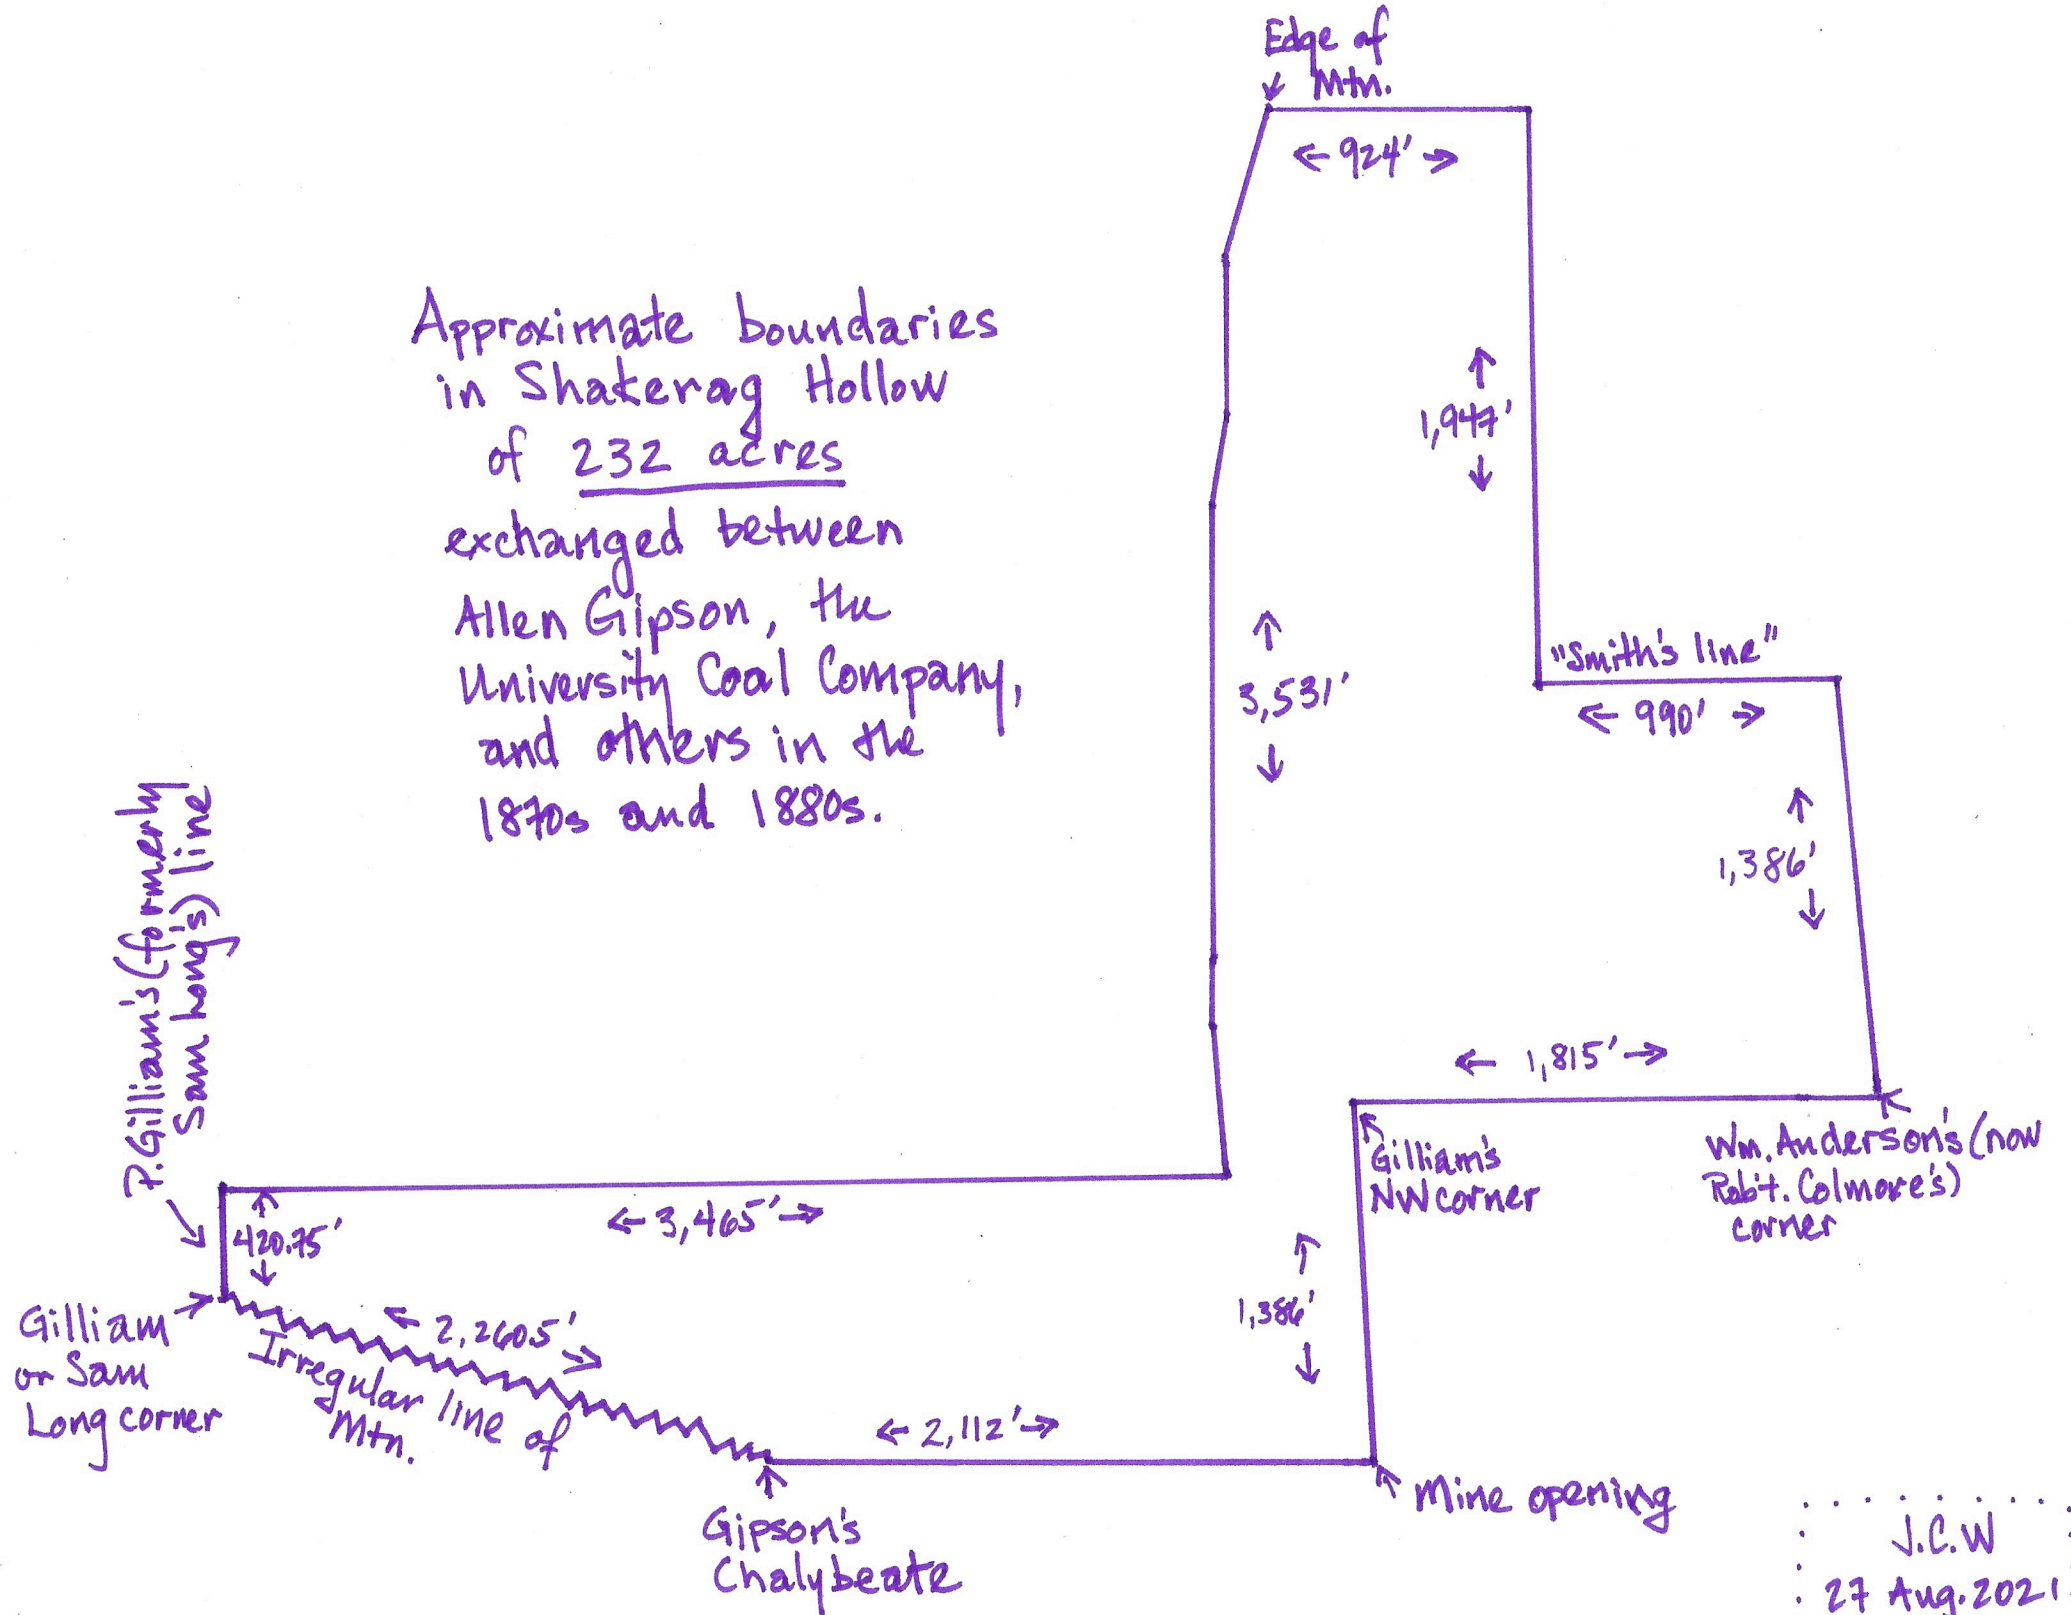 Edge of
Mtn.
924'
Approximate boundaries
in Shakerag Hollow
of 232 acres
exchanged between
Allen Gipson, the
University Coal Company,
and others in the
1870s and 1880s.
1,947'
3,531'
"Smith's line"
990'
1,386'
P. Gilliam's (formerly
Sam Long's) line
1,815'
Gilliam's
NW corner
Wm. Anderson's (now
Rob't. Colmore's)
corner
3,465'
420.75'
Gilliam
or Sam
Long corner
2,260.5'
Irregular line of
Mtn.
1,386'
2,112'
Gipson's
Chalybeate
Mine opening
J.C.W
27 Aug. 2021